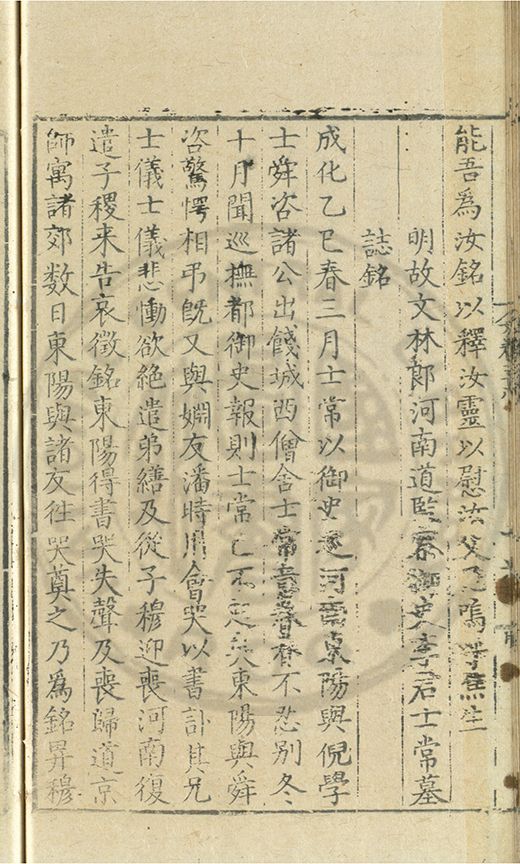 能吾為汝銘以釋汝靈以慰汝父嗚呼焦生
明故文林郎河南道監察御史李君士常墓
誌銘
成化乙巳春三月士常以御史巡河南東陽與倪學
士舜咨諸公出餞城西僧舍士常意眷眷不忍別冬
十月聞巡撫都御史報則士常已不起矣東陽與舜
咨驚愕相弔既又與婣友潘時用會哭以書訃其兄
士儀士儀悲慟欲絕遣弟繕及從子穆迎喪河南復
遣子稷来告哀徵銘東陽得書哭失聲及喪歸道京
師寓諸郊数日東陽與諸友徃哭奠之乃為銘畀穆